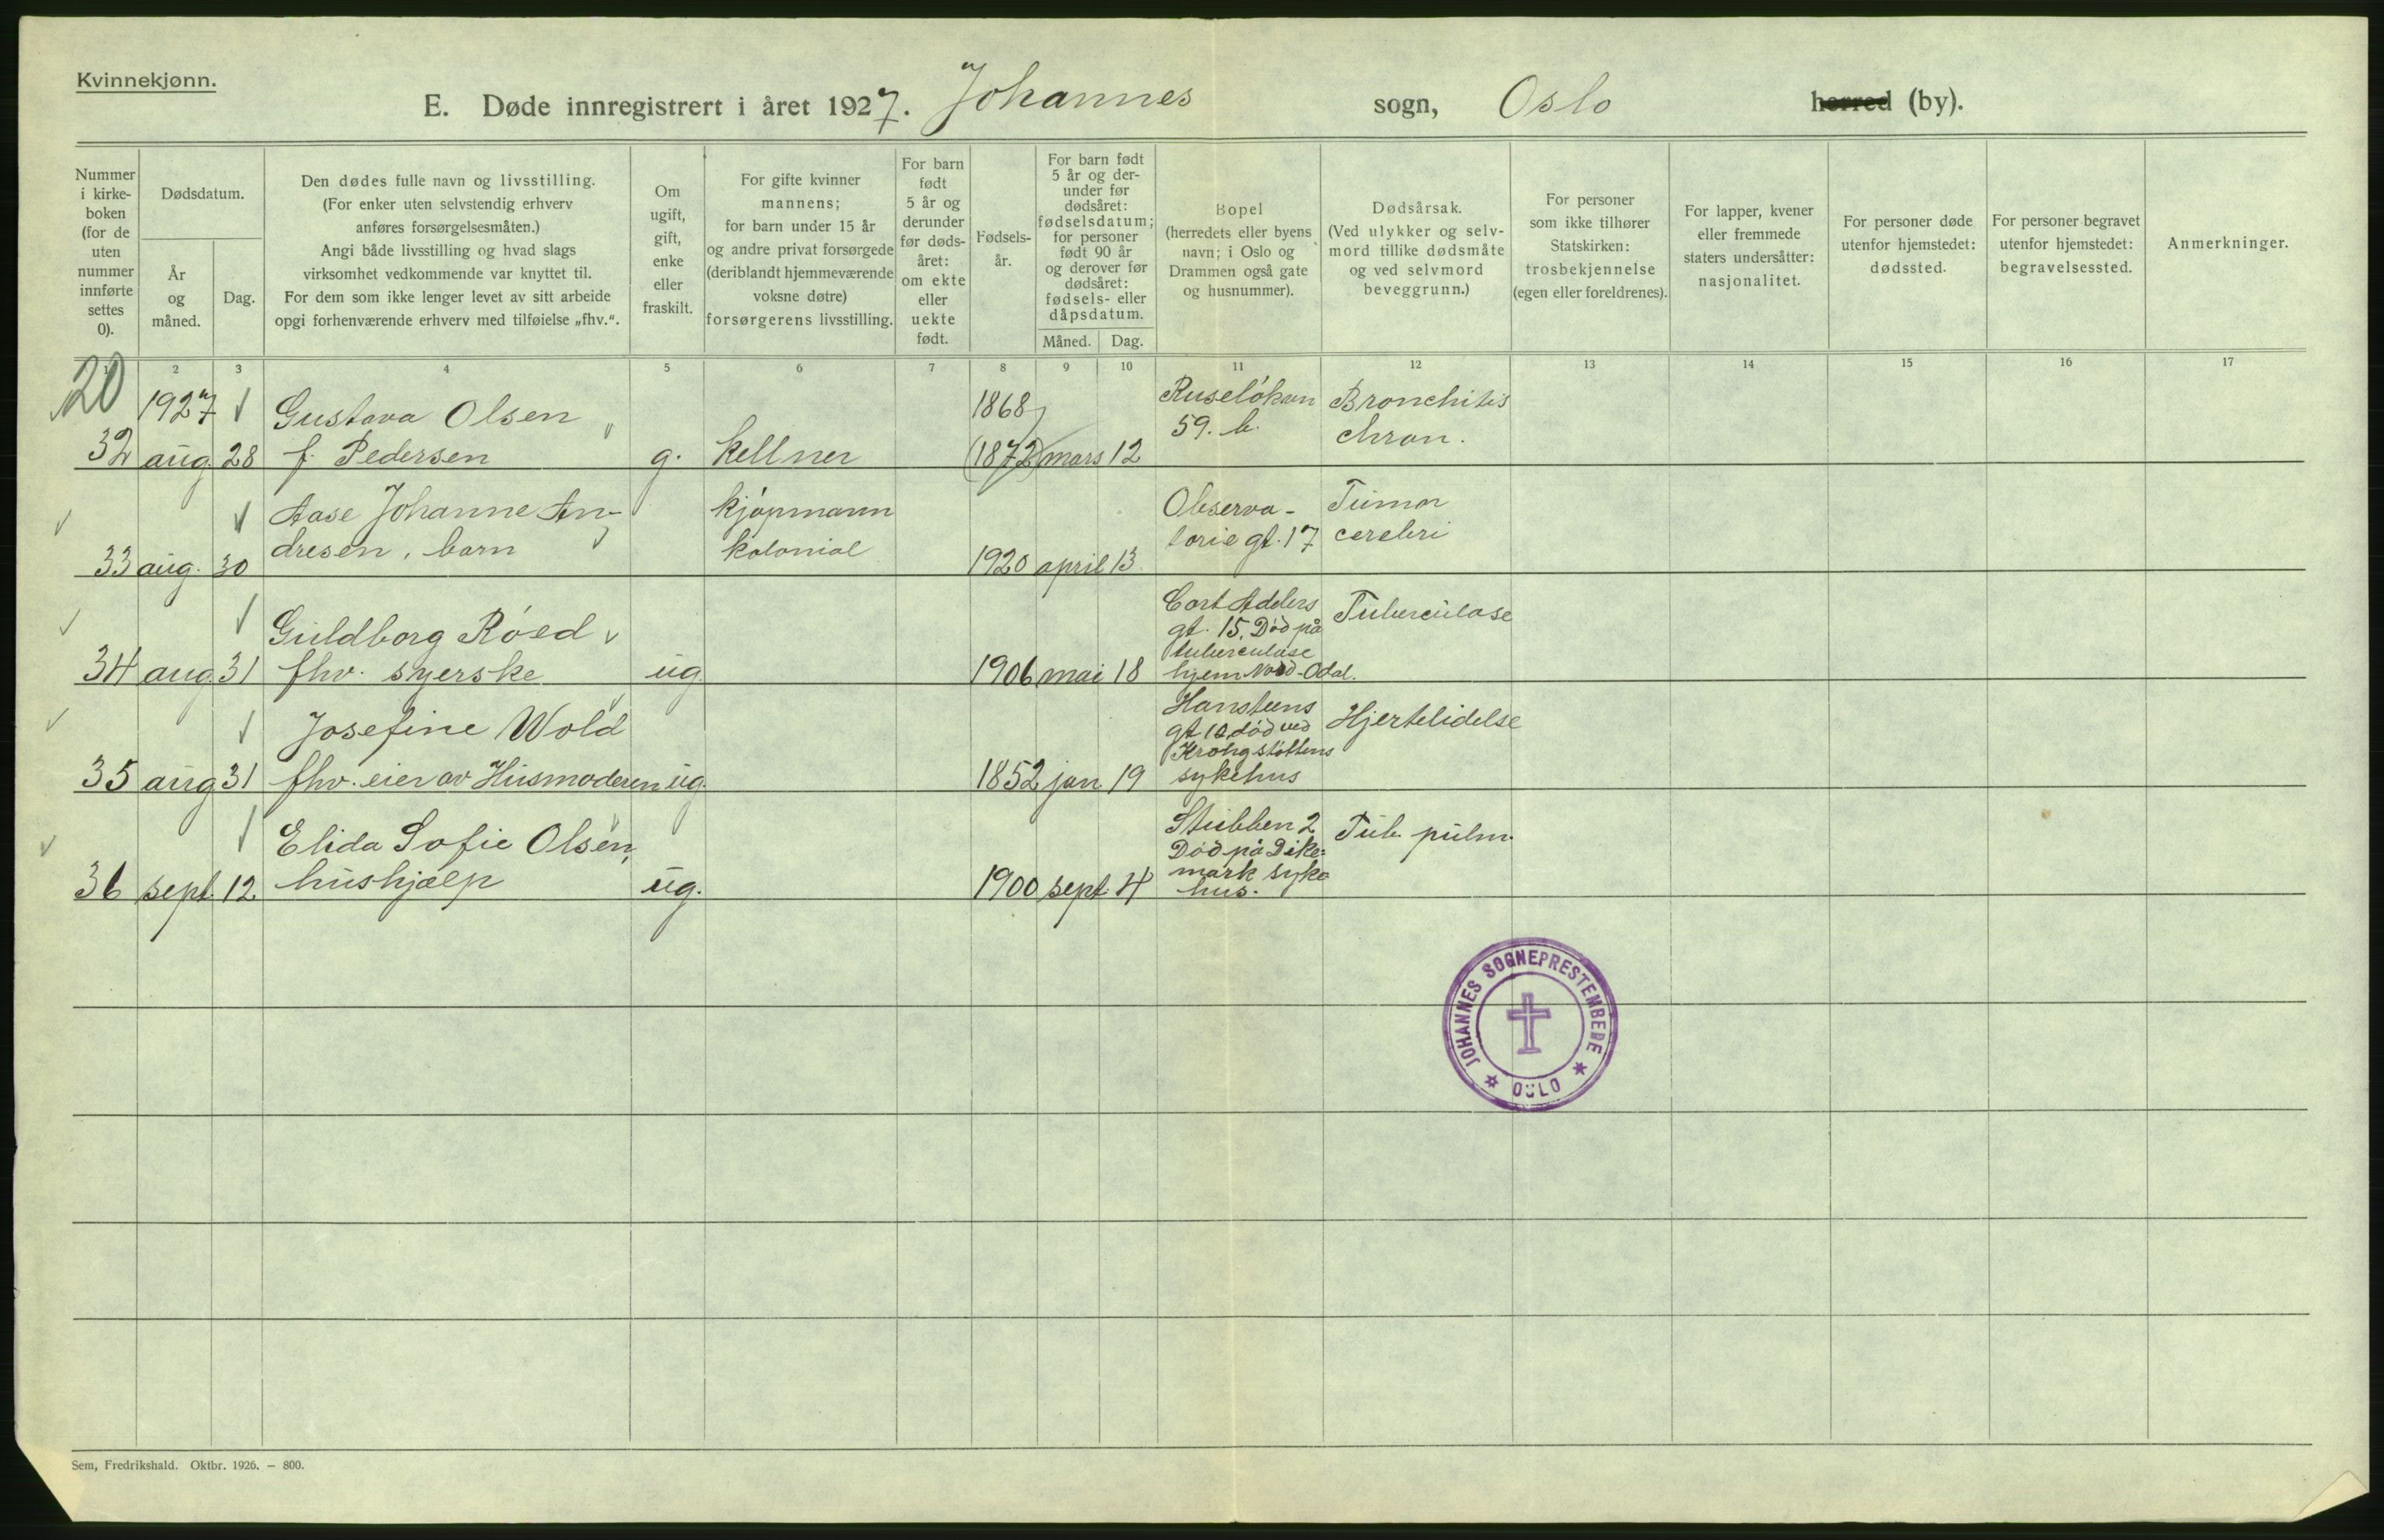 Kvinnekjønn.
E. Døde innregistrert i året 1927. Johannes sogn, Oslo herred (by).
Nummer i kirke- boken (for de uten nummer innførte settes 0).
Dødsdatum.
År og måned.
Dag.
Den dødes fulle navn og livsstilling.
(For enker uten selvstendig erhverv
anføres forsørgelsesmåten.)
Angi både livsstilling og hvad slags
virksomhet vedkommende var knyttet til.
For dem som ikke lenger levet av sitt arbeide
opgi forhenværende erhverv med tilføielse „fhv.“.
Om ugift, gift, enke eller fraskilt.
For gifte kvinner
mannens;
for barn under 15 år
og andre privat forsørgede
(deriblandt hjemmeværende
voksne døtre)
forsørgerens livsstilling.
For barn født 5 år og derunder før døds- året: om ekte eller uekte født.
Fødsels- år.
For barn født
5 år og der-
under før
dødsåret:
fødselsdatum;
for personer
født 90 år
og derover før
dødsåret:
fødsels- eller
dåpsdatum.
Måned. Dag.
Bopel
(herredets eller byens
navn; i Oslo og
Drammen også gate
og husnummer).
Dødsårsak.
(Ved ulykker og selv-
mord tillike dødsmåte
og ved selvmord
beveggrunn.)
For personer
som ikke tilhører
Statskirken:
trosbekjennelse
(egen eller foreldrenes).
For lapper, kvener
eller fremmede
staters undersåtter:
nasjonalitet.
For personer døde
utenfor hjemstedet:
dødssted.
For personer begravet
utenfor hjemstedet:
begravelsessted.
Anmerkninger.
1 2 3 4 5 6 7 8 9 10 11 12 13 14 15 16 17
20
1927 Gustava Olsen 1868 Ruseløkvn Bronchitis
59. b. chron.
32 aug. 28 f. Pedersen g. kellner (1872) mars 12
Aase Johanne An- kjøpmann Observa- Tumor
dresen, barn kolonial torie gt. 17 cerebri
33 aug. 30 1920 april 13
Cort Adelers
Guldborg Røed gt. 15. Død på Tuberculose
tuberculose
34 aug. 31 fhv. syerske ug. 1906 mai 18 hjem Nord-Odal.
Hansteens
Josefine Wold gt 12 død ved Hjertelidelse
Krohgstøttens
35 aug 31 fhv. eier av Husmoderen ug. 1852 jan. 19 sykehus
Stubben 2
Elida Sofie Olsen, Død på Dike= Tub. pulm.
mark syke
36 sept. 12 hushjælp ug. 1900 sept. 4 hus.
JOHANNES SOGNEPRESTEMBEDE
OSLO
Sem, Fredrikshald. Oktbr. 1926. — 800.